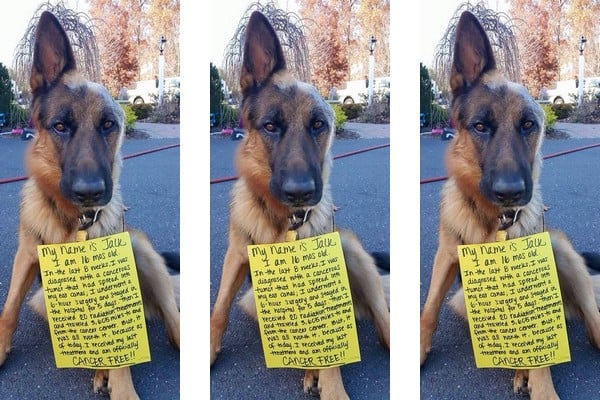 My Name is Jack
I am 16 mos old
In the last 8 weeks, I was
diagnosed with a cancerous
tumor that had spread into
my ear canal, I underwent a
6-hour surgery and stayed in
the hospital for 5 days. Then I
received 20 Radiation Treatments
and traveled 3,635 miles to and
from the cancer center. But it
was all worth it, because as
of today, I received my last
treatment and am officially
CANCER FREE!!
My Name is Jack
I am 16 mos old
In the last 8 weeks, I was
diagnosed with a cancerous
tumor that had spread into
my ear canal, I underwent a
6-hour surgery and stayed in
the hospital for 5 days. Then I
received 20 Radiation Treatments
and traveled 3,635 miles to and
from the cancer center. But it
was all worth it, because as
of today, I received my last
treatment and am officially
CANCER FREE!!
My Name is Jack
I am 16 mos old
In the last 8 weeks, I was
diagnosed with a cancerous
tumor that had spread into
my ear canal, I underwent a
6-hour surgery and stayed in
the hospital for 5 days. Then I
received 20 Radiation Treatments
and traveled 3,635 miles to and
from the cancer center. But it
was all worth it, because as
of today, I received my last
treatment and am officially
CANCER FREE!!